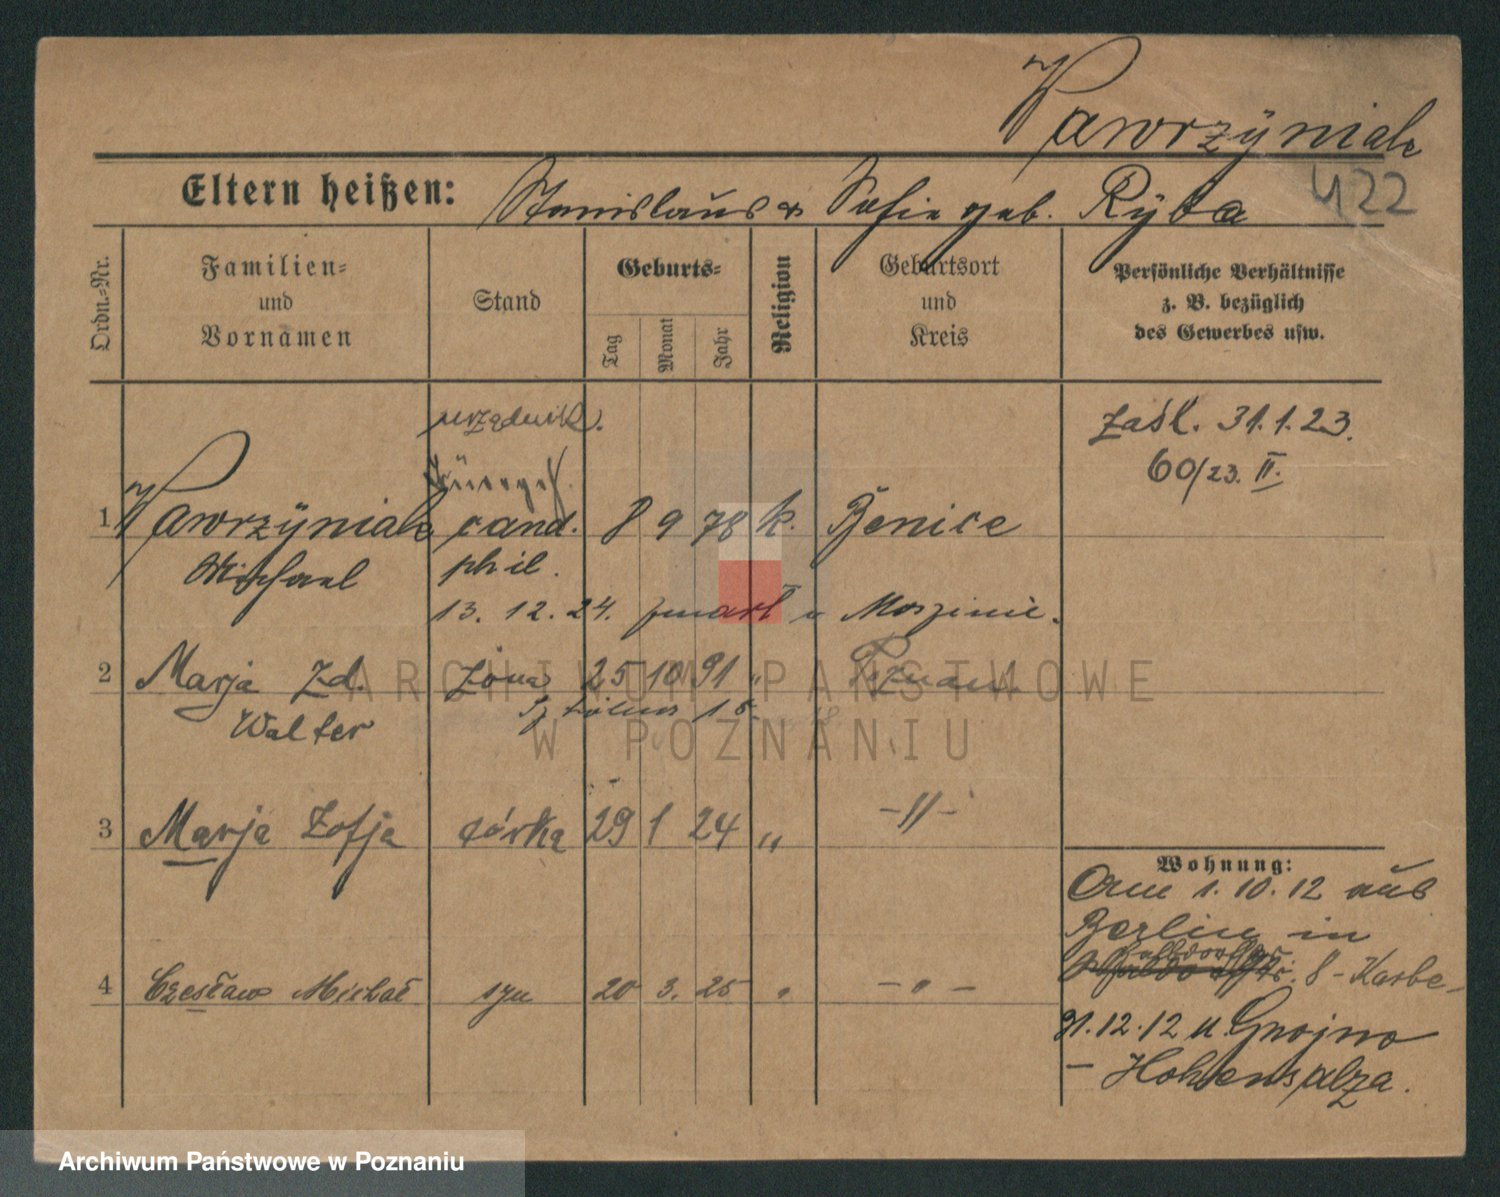 Wawrzÿniak
422
Eltern heißen: Stanislaus & Sofie geb. Rÿba
Ordn.-Nr.
Familien-
und
Vornamen
Stand
Geburts-
Tag
Monat
Jahr
Religion
Geburtsort
und
Kreis
Persönliche Verhältnisse
z. B. bezüglich
des Gewerbes usw.
urzędnik.
zaśl. 31.1.23.
60/23. II.
1 Wawrzÿniak cand. 8 9 78 k. Benice
Michael phil.
13. 12. 24. zmarł w Moszinie.
2 Marja Zd. żona 25 10 91 " Poznań
Walter
ARCHIWUM PAŃSTWOWE
W POZNANIU
3 Marja Zofja córka 29 1 24 " -"-
Wohnung:
1. 10. 12 aus
Berlin in
8 - Karbe
4 Czesław Michał syn 20 3. 25 " -"-
31.12.12 n. Gnojno
- Hohensalza.
Archiwum Państwowe w Poznaniu